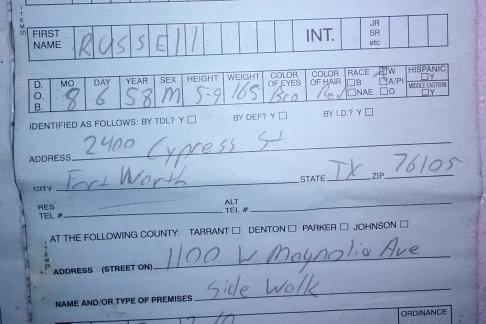 FIRST NAME RUSSELL INT. JR SR etc
D.O.B. MO 8 DAY 6 YEAR 58 SEX M HEIGHT 5-9 WEIGHT 165 COLOR OF EYES Bro COLOR OF HAIR RACE ☑W ☐B ☐A/PI ☐NAE ☐O HISPANIC ☐Y MIDDLE EASTERN ☐Y
IDENTIFIED AS FOLLOWS: BY TDL? Y ☐ BY DEF? Y ☐ BY I.D.? Y ☐
ADDRESS 2400 Cypress St
CITY Fort Worth STATE TX ZIP 76105
RES TEL # ALT TEL #
AT THE FOLLOWING COUNTY: TARRANT ☐ DENTON ☐ PARKER ☐ JOHNSON ☐
ADDRESS (STREET ON) 1100 W Magnolia Ave
NAME AND/OR TYPE OF PREMISES Side Walk
ORDINANCE